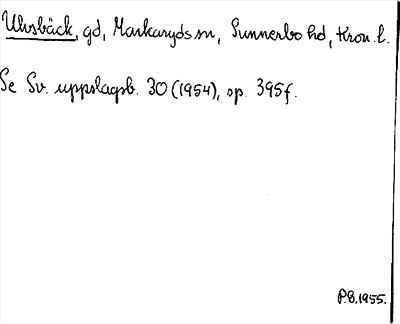 Ulvsbäck, gd, Markaryds sn, Sunnerbo hd, Kron. l.
Se Sv. uppslagsb. 30 (1954), sp. 395f.
P.B. 1955.